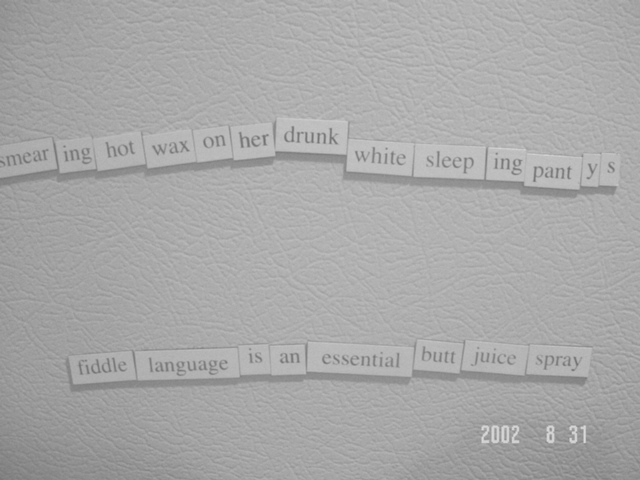 smear ing hot wax on her drunk white sleep ing pant y s
fiddle language is an essential butt juice spray
2002 8 31